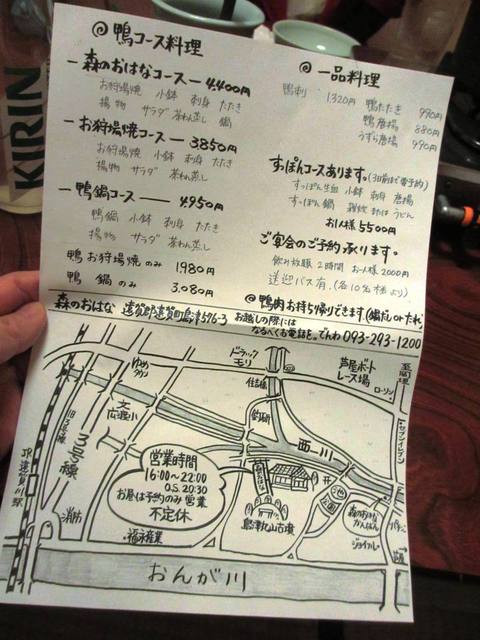 KIRIN
◎鴨コース料理
ー森のおはなコースー 4,400円
お狩場焼 小鉢 刺身 たたき
揚物 サラダ 茶わん蒸し 鍋
ーお狩場焼コースー 3850円
お狩場焼 小鉢 刺身 たたき
揚物 サラダ 茶わん蒸し
ー鴨鍋コースー 4,950円
鴨鍋 小鉢 刺身 たたき
揚物 サラダ 茶わん蒸し
鴨お狩場焼のみ 1980円
鴨 鍋のみ 3,080円
◎一品料理
鴨刺 1,320円 鴨たたき 990円
鴨唐揚 880円
うずら唐揚 990円
すっぽんコースあります。(3日前まで要予約)
すっぽん生血 小鉢 刺身 唐揚
すっぽん鍋 雑炊またはうどん
お1人様 5500円
ご宴会のご予約承ります。
飲み放題 2時間 お1人様2000円
送迎バス有。(各10名様より)
◎鴨肉お持ち帰りできます(鍋だしorたれ)
森のおはな 遠賀郡遠賀町島津576-3 お越しの際には
なるべくお電話を。でんわ 093-293-1200
ドラッグ
モリ
芦屋ボート
レース場
至関理
ローソン
ゆめ
タウン
住吉
セブンイレブン
文
広渡小
旧3号線
3号線
西川
JR遠賀川駅
営業時間
16:00〜22:00
O.S. 20:30
お昼は予約のみ営業
不定休
島津丸山古墳
池
公園
森のおはな
かんばん
ジョイフル
消防
福永産業
おんが川